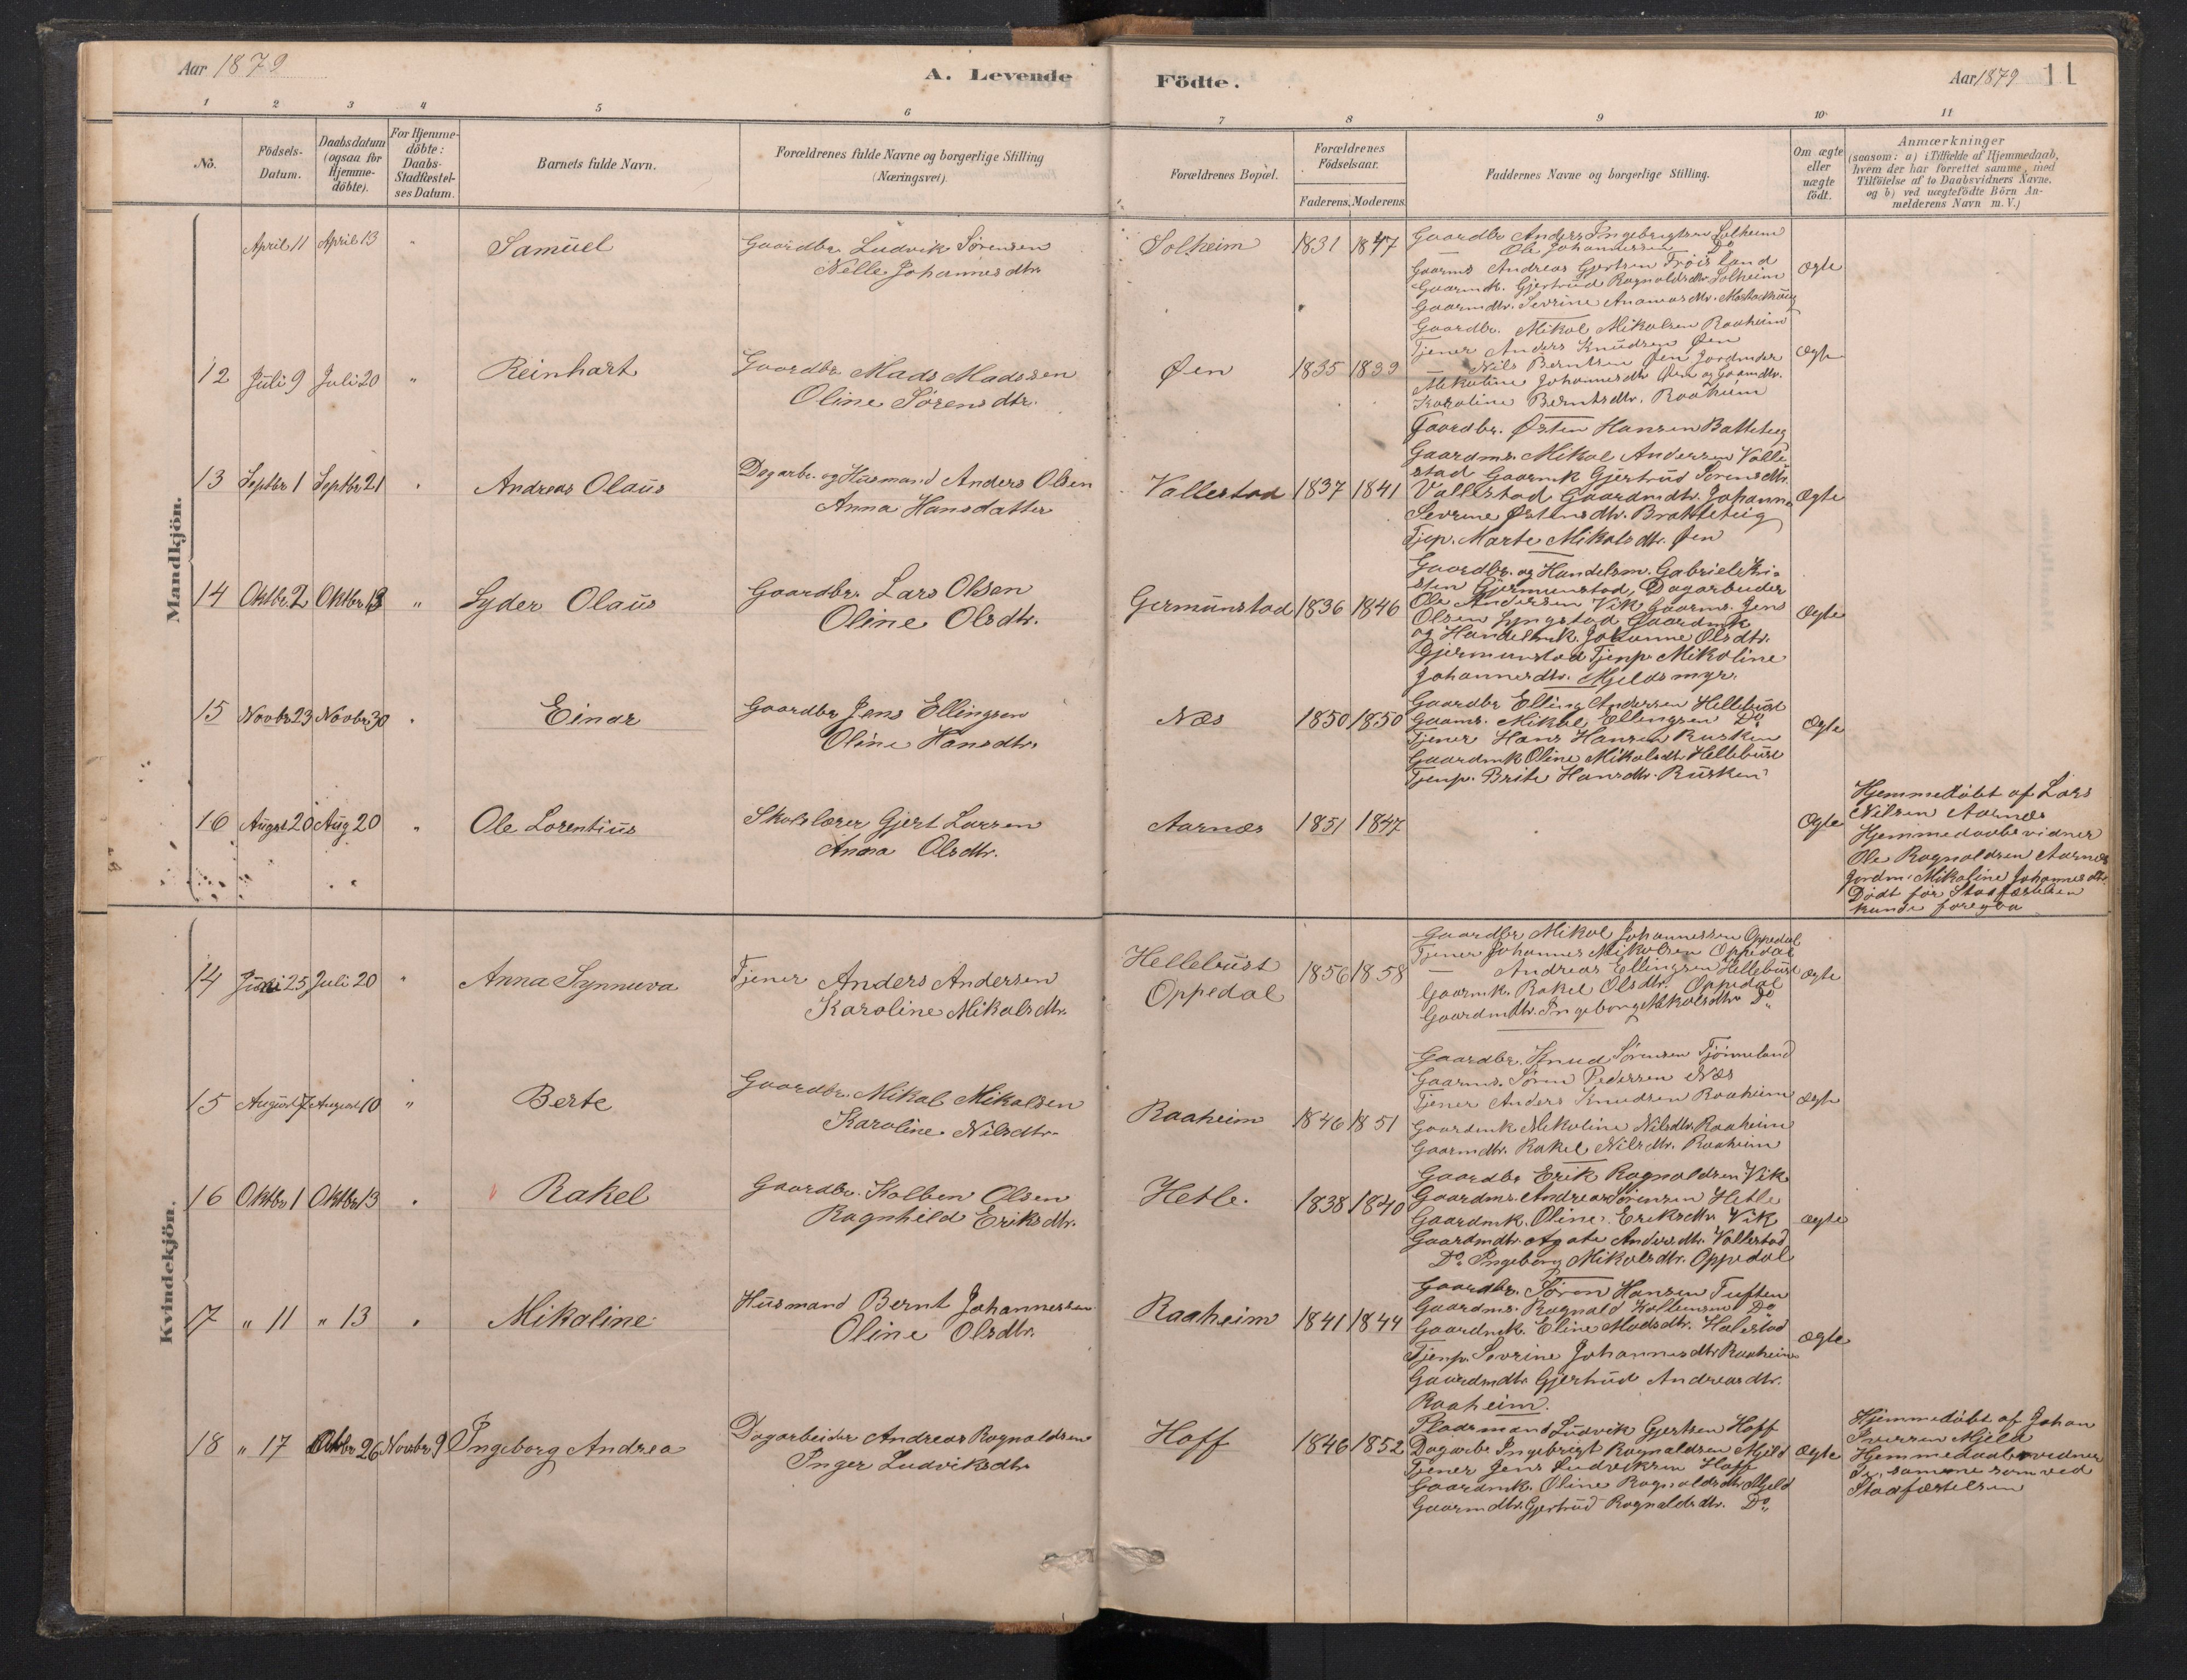 Aar 1879
A. Levende Födte.
Aar 1879 11
1 2 3 4 5 6 7 8 9 10 11
No.
Födsels-Datum.
Daabsdatum (ogsaa for Hjemme-döbte).
For Hjemme-döbte: Daabs-Stadfæstel-ses Datum.
Barnets fulde Navn.
Forældrenes fulde Navne og borgerlige Stilling
(Næringsvei).
Forældrenes Bopæl.
Forældrenes Födselsaar.
Faderens. Moderens.
Faddernes Navne og borgerlige Stilling.
Om ægte eller uægte födt.
Anmærkninger
(saasom: a) i Tilfælde af Hjemmedaab,
hvem der har forrettet samme, med
Tilföielse af to Daabsvidners Navne.
og b) ved uægtefödte Börn An-
melderens Navn m. V.)
Mandkjön.
April 11 April 13 " Samuel
Gaardbr. Ludvik Sørensen
Nelle Johannesdtr.
Solheim 1831 1847
Gaardbr Anders Ingebrigtsen Solheim
— Ole Johannessen Do
Gaarms Andreas Gjertsen Frøisland
Gaarmk. Gjertrud Ragnaldsdtr Solheim
Gaarmdtr. Sevrine
Ægte
12 Juli 9 Juli 20 " Reinhart
Gaardbr Mads Madssen
Oline Sørensdtr.
Øen 1835 1839
Gaardbr. Mikal Mikalsen Raaheim
Tjener Anders Knudsen Øen
— Nils Berntsen Øen
Mikaline Johannesdtr Øen og Gaamdtr.
Karoline Berntsdtr. Raaheim
Ægte
13 Septbr 1 Septbr 21 " Andreas Olaus
Dagarb. og Husmand Anders Olsen
Anna Hansdatter
Vallestad 1837 1841
Gaardbr. Østen Hansen Batteteig
Gaardms. Mikal Andersen Valle-
stad Gaarmk Gjertrud Sørensdtr.
Vallestad Gaardmdtr. Johanne
Sevrine Østensdtr. Bratteteig
Tjep. Marte Mikalsdtr. Øen
Ægte
14 Oktbr. 2 Oktbr 13 " Lyder Olaus
Gaardbr. Lars Olsen
Oline Olsdtr.
Germunstad 1836 1846
Gaardbr. og Handelsm. Gabriel Kri-
sten Gjermunstad, Dagarbeider
Ole Andersen Vik Gaarms. Jens
Olsen Lyngstad Gaardmk
og Handelmk. Johanne Olsdtr.
Gjermunstad Tjenp Mikoline
Johannesdtr. Mjeldsmyr.
Ægte
15 Novbr 23 Novbr 30 " Einar
Gaardbr Jens Ellingsen
Oline Hansdtr.
Næs 1850 1850
Gaardbr Elling Andersen Hellebust
Gaams. Mikal Ellingsen Do
Tjener Hans Hansen Rusken
Gaardmk Oline Mikalsdtr Hellebust
Tjenp. Brite Hansdtr. Rusken
Ægte
16 August 20 Aug 20 " Ole Lorentius
Skolelærer Gjert Larsen
Anna Olsdtr.
Aarnæs 1851 1847
Ægte
Hjemmedøbt af Lars
Nilsen Aarnæs
Hjemmedaabsvidner
Ole Ragnaldsen Aarnæs
Jordm. Mikaline Johannesdtr.
Dødt før Stadfæstelsen
kunde foregaa
Kvindekjön.
14 Juni 25 Juli 20 " Anna Synnuva
Tjener Anders Andersen
Karoline Mikalsdtr.
Hellebust
Oppedal
1856 1858
Gaardbr Mikal Johannessen Oppedal
Tjener Johannes Mikalsen Oppedal
— Andreas Ellingsen Hellebust
Gaarmk. Rakel Olsdtr. Oppedal
Gaardmdtr. Ingeborg Mikalsdtr Do
Ægte
15 August 7 August 10 " Berte
Gaardbr. Mikal Mikalsen
Karoline Nilsdtr.
Raaheim 1846 1851
Gaardbr. Knud Sørensen Tjønneland
Gaarms. Søren Pedersen Næs
Tjener Anders Knudsen Raaheim
Gaardmk Mikoline Nilsdtr. Raaheim
Gaarmdtr. Rakel Nilsdtr. Raaheim
Ægte
16 Oktbr 1 Oktbr 13 " Rakel
Gaardbr. Kolben Olsen
Ragnhild Eriksdtr.
Hetle. 1838 1840
Gaardbr Erik Ragnaldsen Vik
Gaardms. Andreas Sørensen Hetle
Gaardmk. Oline Eriksdtr Vik
Gaardmdtr. Agate Andersdtr. Vallestad
Do Ingeborg Mikalsdtr. Oppedal
Ægte
17 " 11 " 13 " Mikaline
Husmand Bernt Johannessen
Oline Olsdtr.
Raaheim 1841 1844
Gaardbr. Søren Hansen Tuften
Gaardms. Ragnald Kolbensen Do
Gaardmk. Eline Madsdtr. Halestad
Tjenp. Sevrine Johannesdtr Raaheim
Gaardmdtr Gjertrud Andreasdtr.
Raaheim.
Ægte
18 " 17 Oktbr 26 Novbr. 9 Ingeborg Andrea
Dagarbeider Andreas Ragnaldsen
Inger Ludviksdtr.
Hoff 1846 1852
Pladsmand Ludvik Gjertsen Hoff
Dagarbr Ingebrigt Ragnaldsen Mjeld
Tjener Jens Ludviksen Hoff
Gaardmk. Oline Ragnaldsdtr. Mjeld
Gaarmdtr. Gjertrud Ragnaldsdtr. Do
Ægte
Hjemmedøbt af Johan
Iversen Mjeld
Hjemmedaabsvidner
samme som ved
Stadfæstelsen